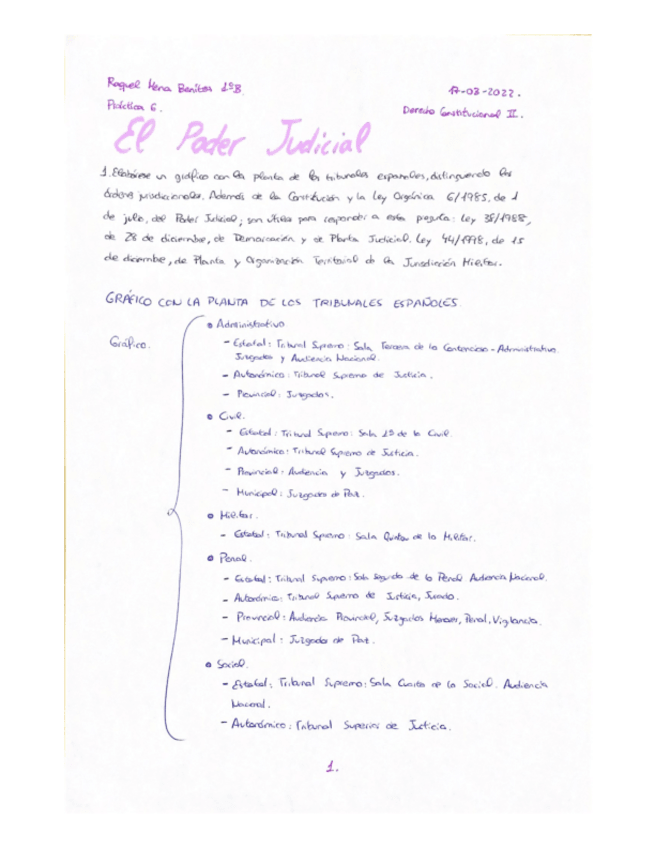 Raquel Mena Benitos 1ºB.
17-03-2022.
Práctica 6.
Derecho Constitucional II.
El Poder Judicial
1. Elabórese un gráfico con la planta de los tribunales españoles, distinguiendo los
órdenes jurisdiccionales. Además de la Constitución y la Ley Orgánica 6/1985, de 1
de julio, del Poder Judicial; son útiles para responder a esta pregunta: Ley 38/1988,
de 28 de diciembre, de Demarcación y de Planta Judicial. Ley 44/1998, de 15
de diciembre, de Planta y Organización Territorial de la Jurisdicción Militar.
GRÁFICO CON LA PLANTA DE LOS TRIBUNALES ESPAÑOLES.
Gráfico.
• Administrativo
- Estatal: Tribunal Supremo: Sala Tercera de lo Contencioso-Administrativo.
Juzgados y Audiencia Nacional.
- Autonómico: Tribunal Supremo de Justicia.
- Provincial: Juzgados.
• Civil.
- Estatal: Tribunal Supremo: Sala 1º de lo Civil.
- Autonómico: Tribunal Supremo de Justicia.
- Provincial: Audiencia y Juzgados.
- Municipal: Juzgados de Paz.
• Militar.
- Estatal: Tribunal Supremo: Sala Quinta de lo Militar.
• Penal.
- Estatal: Tribunal Supremo: Sala Segunda de lo Penal Audiencia Nacional.
- Autonómico: Tribunal Supremo de Justicia, Jurado.
- Provincial: Audiencia Provincial, Juzgados Menores, Penal, Vigilancia.
- Municipal: Juzgado de Paz.
• Social.
- Estatal: Tribunal Supremo: Sala Cuarta de lo Social. Audiencia
Nacional.
- Autonómico: Tribunal Superior de Justicia.
1.